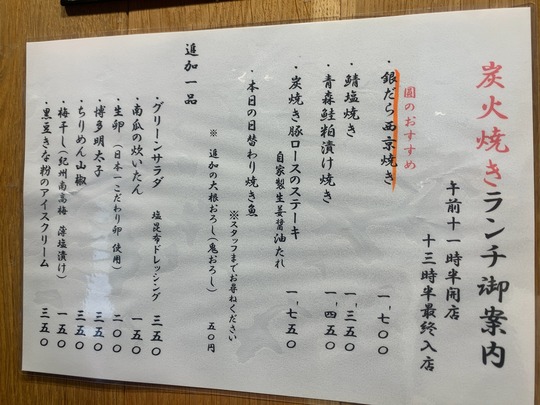 炭火焼きランチ御案内
午前十一時半開店
十三時半最終入店
圓のおすすめ
・銀だら西京焼き 一、七〇〇
・鯖塩焼き 一、三五〇
・青森鮭粕漬け焼き 一、四五〇
・炭焼き豚ロースのステーキ 一、七五〇
自家製生姜醤油たれ
・本日の日替わり焼き魚
※スタッフまでお尋ねください
※ 追加の大根おろし(鬼おろし) 五〇円
追加一品
・グリーンサラダ 塩昆布ドレッシング 三五〇
・南瓜の炊いたん 一五〇
・生卵(日本一こだわり卵 使用) 二〇〇
・博多明太子 三五〇
・ちりめん山椒 三五〇
・梅干し(紀州南高梅 藻塩漬け) 一五〇
・黒豆きな粉のアイスクリーム 三五〇